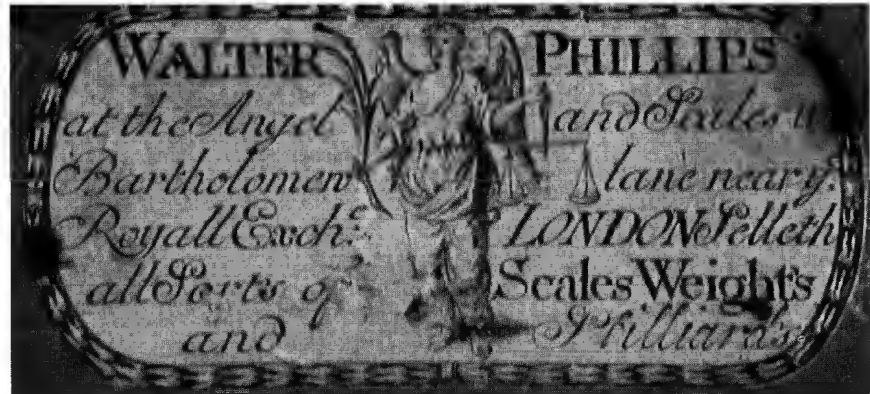 WALTER PHILLIPS
at the Angel and Scales in
Bartholomew lane near y.e
Royall Exch.e LONDON Selleth
all Sorts of Scales Weights
and Stilliard's